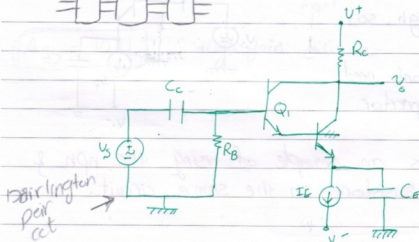 V+
Rc
Vo
Cc
Q1
RB
Vs
IE
CE
V-
Darlington
pair
cct